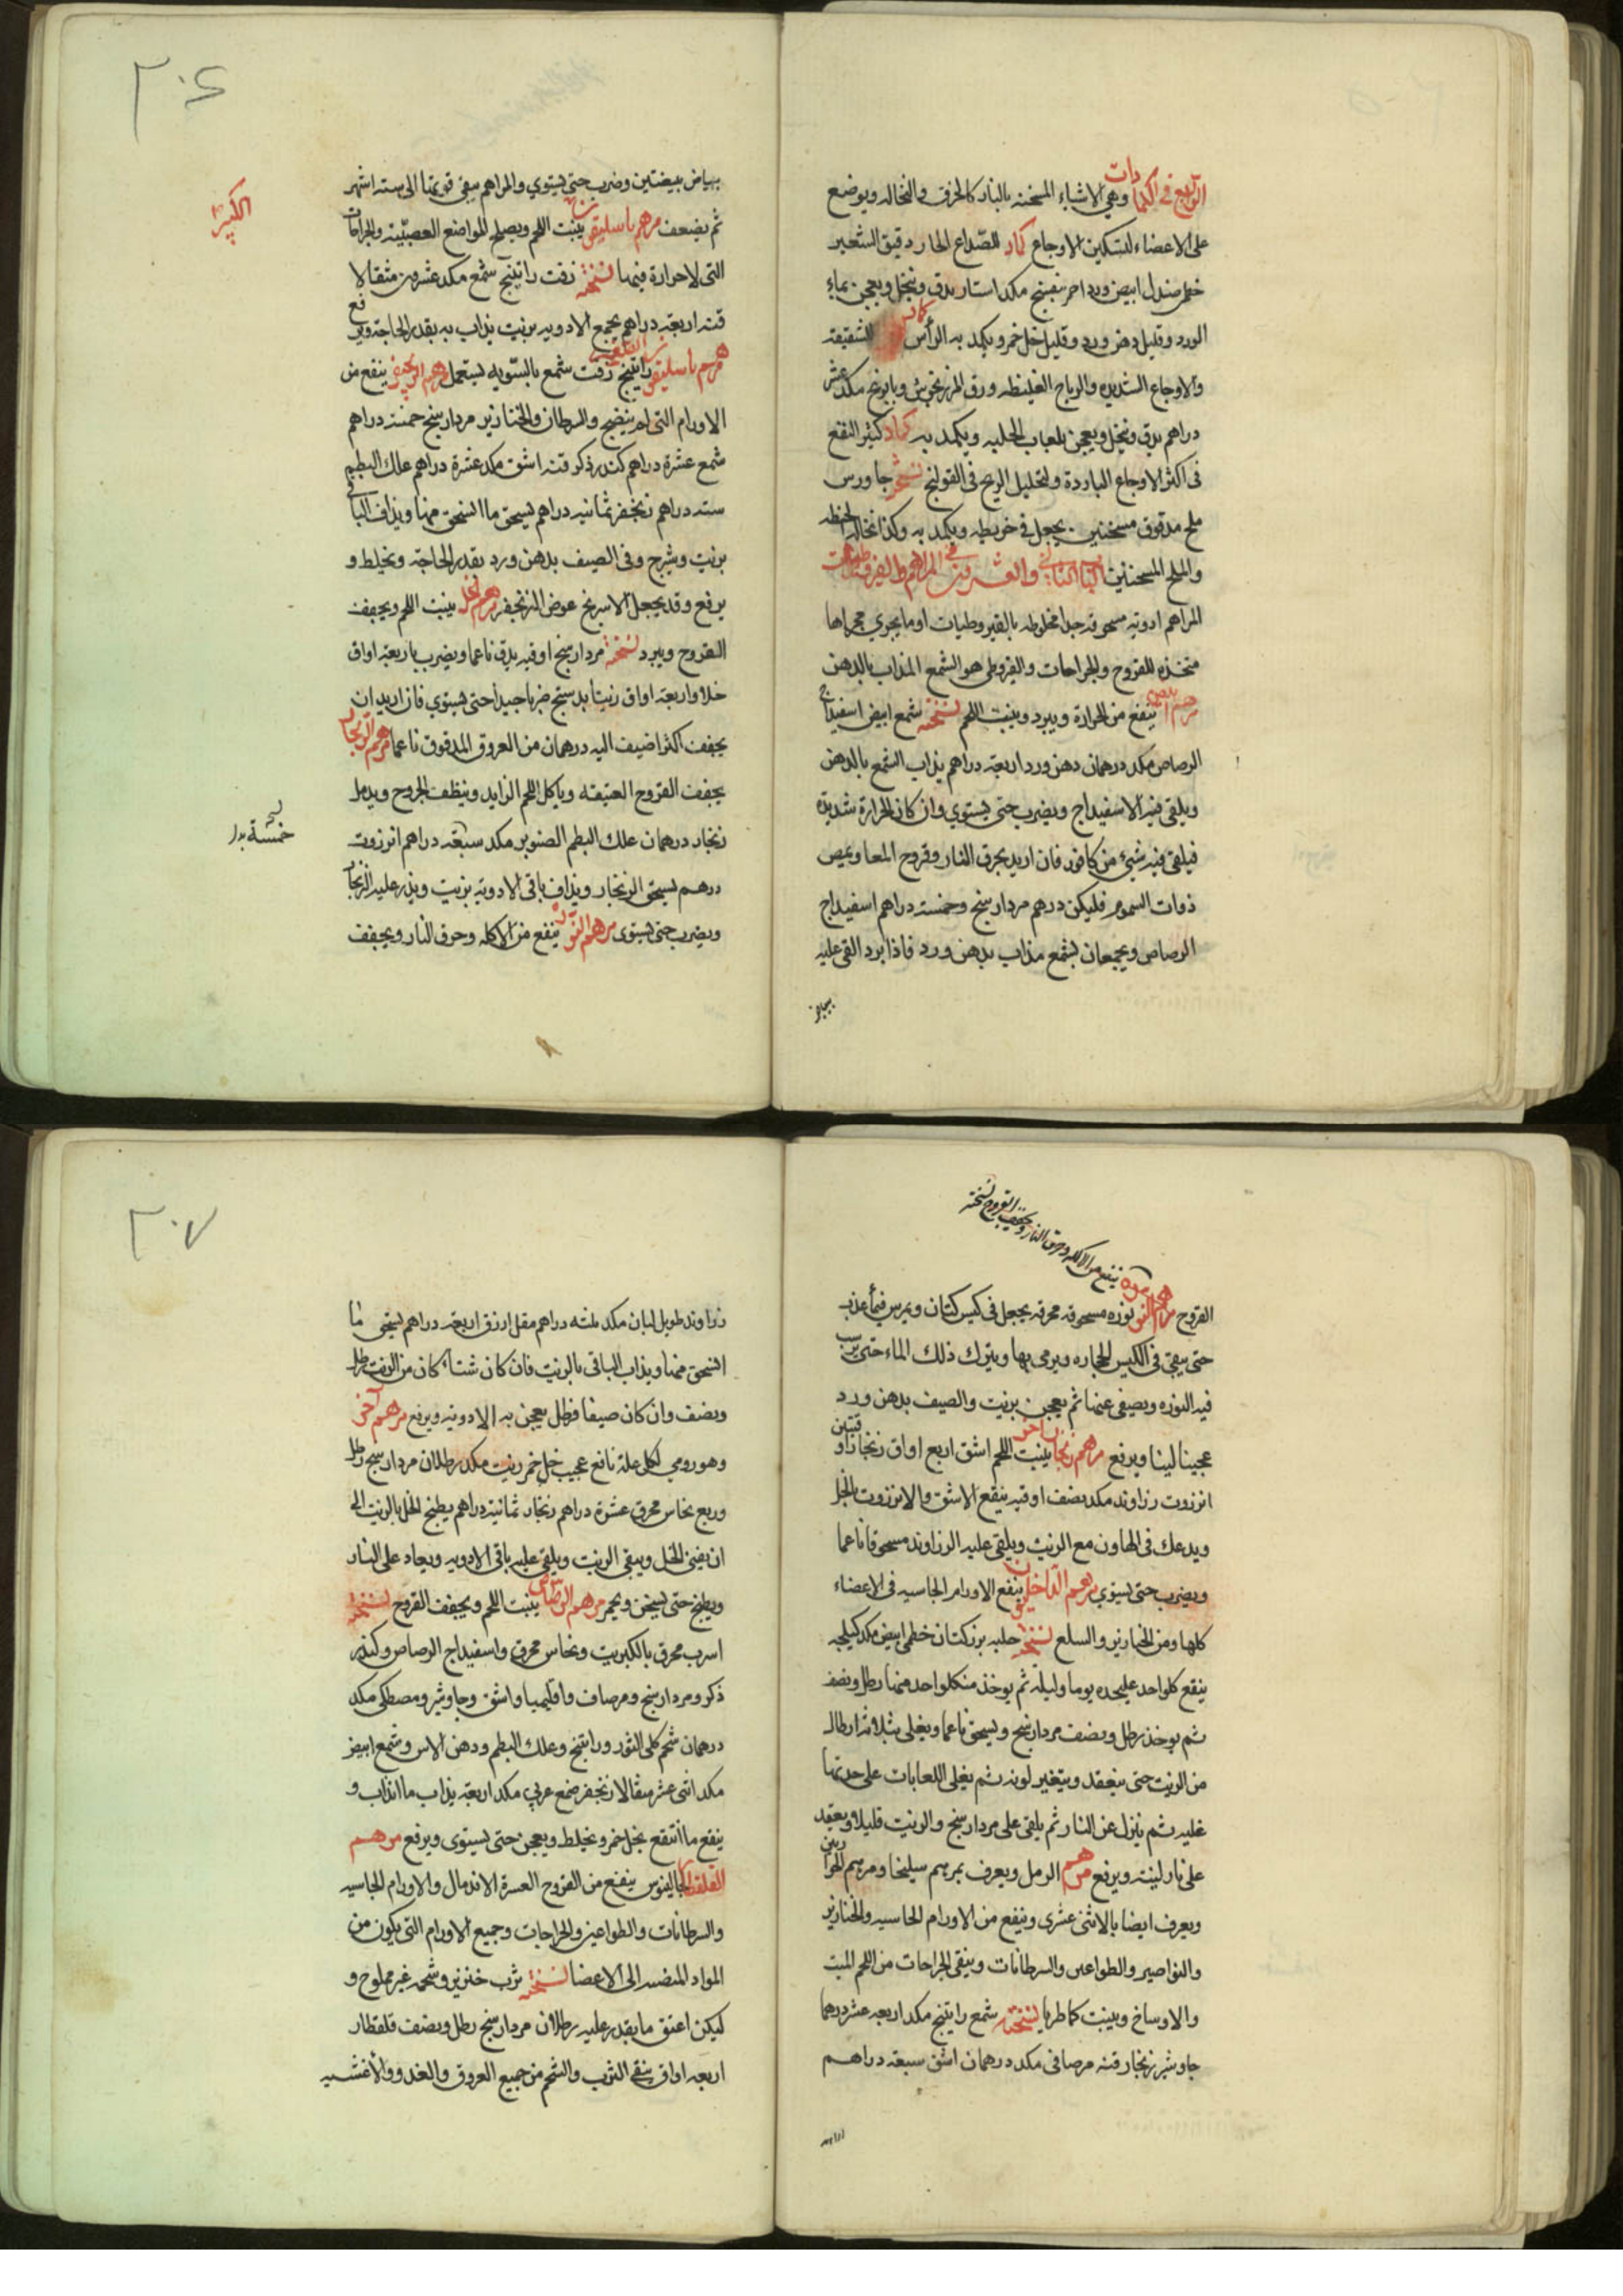 الرابع في الكمادات وهي الاشياء المسخنة بالنار كالخرق والنخالة ويوضع
على الاعضاء لتسكين الاوجاع كماد للصداع الحار دقيق الشعير
صندل ابيض ورد احمر بنفسج مكد استار يدق وينخل ويعجن بماء
الورد وقليل دهن ورد وقليل خل خمر ويكمد به الرأس كماد للشقيقة
والاوجاع الشديدة والرياح الغليظة ورق المرزنجوش وبابونج مكد عشر
دراهم يدق وينخل ويعجن بلعاب الحلبه ويكمد به كماد كثير النفع
في اكثر الاوجاع الباردة ولتحليل الريح في القولنج نسخته جاورس
ملح مدقوق مسخنين يجعل في خريطه ويكمد به وكذا نخالة الحنطه
والملح المسخنين الباب الثاني والعشرون في المراهم والقيروطيات
المراهم ادوية مسحوقه جدا مخلوطه بالقيروطيات او ما يجري مجراها
متخذه للقروح والجراحات والقيروطي هو الشمع المذاب بالدهن
مرهم ابيض ينفع من الحرارة ويبرد وينبت اللحم نسخته شمع ابيض اسفيداج
الرصاص مكد درهمان دهن ورد اربعة دراهم يذاب الشمع بالدهن
ويلقى فيه الاسفيداج ويضرب حتى يستوي وان كان الحرارة شديدة
فيلقى فيه شيئ من كافور فان اريد بحرق النار وقروح المعا وعض
ذوات السموم فليكن درهم مردارسنج وخمسة دراهم اسفيداج
الرصاص ويجمعان بشمع مذاب بدهن ورد فاذا برد القى عليه
بياض
٣٠٦
بياض بيضتين وضرب حتى يستوي والمراهم يبقى قوتها الى ستة اشهر
ثم يضعف مرهم باسليقون الكبير ينبت اللحم ويصلح للمواضع العصبية والجراحات
التى لا حرارة فيها نسخته زفت راتينج شمع مكد عشرون مثقالا
قنه اربعة دراهم يجمع الادويه بزيت يذاب به بقدر الحاجة ويرفع
مرهم باسليقون الصغير راتينج زفت شمع بالسويه يستعمل مرهم الزنجفر ينفع من
الاورام التى لم ينضج والسرطان والخنازير مردارسنج خمسة دراهم
شمع عشرة دراهم كندر ذكر قنه اشق مكد عشرة دراهم علك البطم
سته دراهم زنجفر ثمانيه دراهم يسحق ما انسحق منها ويذاف الباقى
بزيت وشيرج وفى الصيف بدهن ورد بقدر الحاجة ويخلط و
يرفع وقد يجعل الاسرنج عوض الزنجفر مرهم الخل ينبت اللحم ويجفف
القروح ويبرد نسخته مردارسنج اوقيه يدق ناعما ويضرب باربعة اواق
خلا واربعة اواق زيتا بدستج ضربا جيدا حتى يستوي فان اريد ان
يجفف اكثر اضيف اليه درهمان من العروق المدقوق ناعما مرهم الزنجار
يجفف القروح العتيقه وياكل اللحم الزايد وينظف الجروح ويدمل
زنجار درهمان علك البطم الصنوبر مكد سبعة دراهم انزروت
خمسة
درهم يسحق الزنجار ويذاف باقى الادوية بزيت ويذر عليه الزنجار
ويضرب حتى يستوى مرهم النوره ينفع من الاكله وحرق النار ويجفف
الكبير
ينفع من الاكله وحرق النار ويجفف القروح نسخته
القروح مرهم النوره نوره مسحوقه محرقه يجعل في كيس كتان ويمرس في ماء عذب
حتى يبقى فى الكيس الحجاره ويرمى بها ويترك ذلك الماء حتى يرسب
فيه النوره ويصفى عنها ثم يعجن بزيت والصيف بدهن ورد
عجينا لينا ويرفع مرهم زنجار اخر ينبت اللحم اشق اربع اواق زنجار اوقيتين
انزروت زراوند مكد نصف اوقيه ينقع الاشق والانزروت بالخل
ويدعك فى الهاون مع الزيت ويلقى عليه الزراوند مسحوقا ناعما
ويضرب حتى يستوي مرهم الداخليون ينفع الاورام الجاسيه فى الاعضاء
كلها ومن الخنازير والسلع نسخته حلبه بزر كتان خطمى ابيض مكد كيلجه
ينقع كلواحد عليحده يوما وليلة ثم يوخذ من كلواحد منها رطل ونصف
ثم يوخذ رطل ونصف مردارسنج ويسحق ناعما ويغلى بثلاثة ارطال
من الزيت حتى ينعقد ويتغير لونه ثم يغلى اللعابات على حدتها
غليه ثم ينزل عن النار ثم يلقى على مردارسنج والزيت قليلا ويعقد
على نار لينة ويرفع مرهم الرمل ويعرف بمرهم سليخا ومرهم الحواريين
ويعرف ايضا بالاثنى عشرى وينفع من الاورام الجاسيه والخنازير
والنواصير والطواعين والسرطانات وينقى الجراحات من اللحم الميت
والاوساخ وينبت لحما طريا نسخته شمع راتينج مكد اربعه عشر درهما
جاوشير زنجار قنه مرصافى مكد درهمان اشق سبعة دراهم
زراوند
٣٠٧
زراوند طويل لبان مكد ثلثه دراهم مقل ازرق اربعة دراهم يسحق ما
انسحق منها ويذاب الباقى بالزيت فان كان شتاء كان من الزيت رطل
ونصف وان كان صيفا فرطل يعجن به الادوية ويرفع مرهم آخر
وهو رومي لكل علة نافع عجيب خل خمر زيت مكد رطلان مردارسنج رطل
وربع نحاس محرق عشرة دراهم زنجار ثمانية دراهم يطبخ الخل بالزيت الى
ان يفنى الخل ويبقى الزيت ويلقى عليه باقى الادويه ويعاد على النار
ويطبخ حتى يسخن ويحمر مرهم الرصاص ينبت اللحم ويجفف القروح نسخته
اسرب محرق بالكبريت ونحاس محرق واسفيداج الرصاص وكندر
ذكر ومردارسنج ومرصاف واقليميا واشق وجاوشير ومصطكى مكد
درهمان شحم كلى الثور وراتينج وعلك البطم ودهن الاس وشمع ابيض
مكد اثنى عشر مثقالا زنجفر صمغ عربي مكد اربعة يذاب ما انذاب و
ينقع ما انتقع بخل خمر ويخلط ويعجن حتى يستوى ويرفع مرهم
القلقطار لجالينوس ينفع من القروح العسرة الاندمال والاورام الجاسيه
والسرطانات والطواعين والجراحات وجميع الاورام التى يكون من
المواد المنصبه الى الاعضا نسخته ثرب خنزير وشحمه غير مملوح و
ليكن اعتق ما يقدر عليه رطلان مردارسنج رطل ونصف قلقطار
اربعه اواق ينقى الثرب والشحم من جميع العروق والغدد والأغشيه